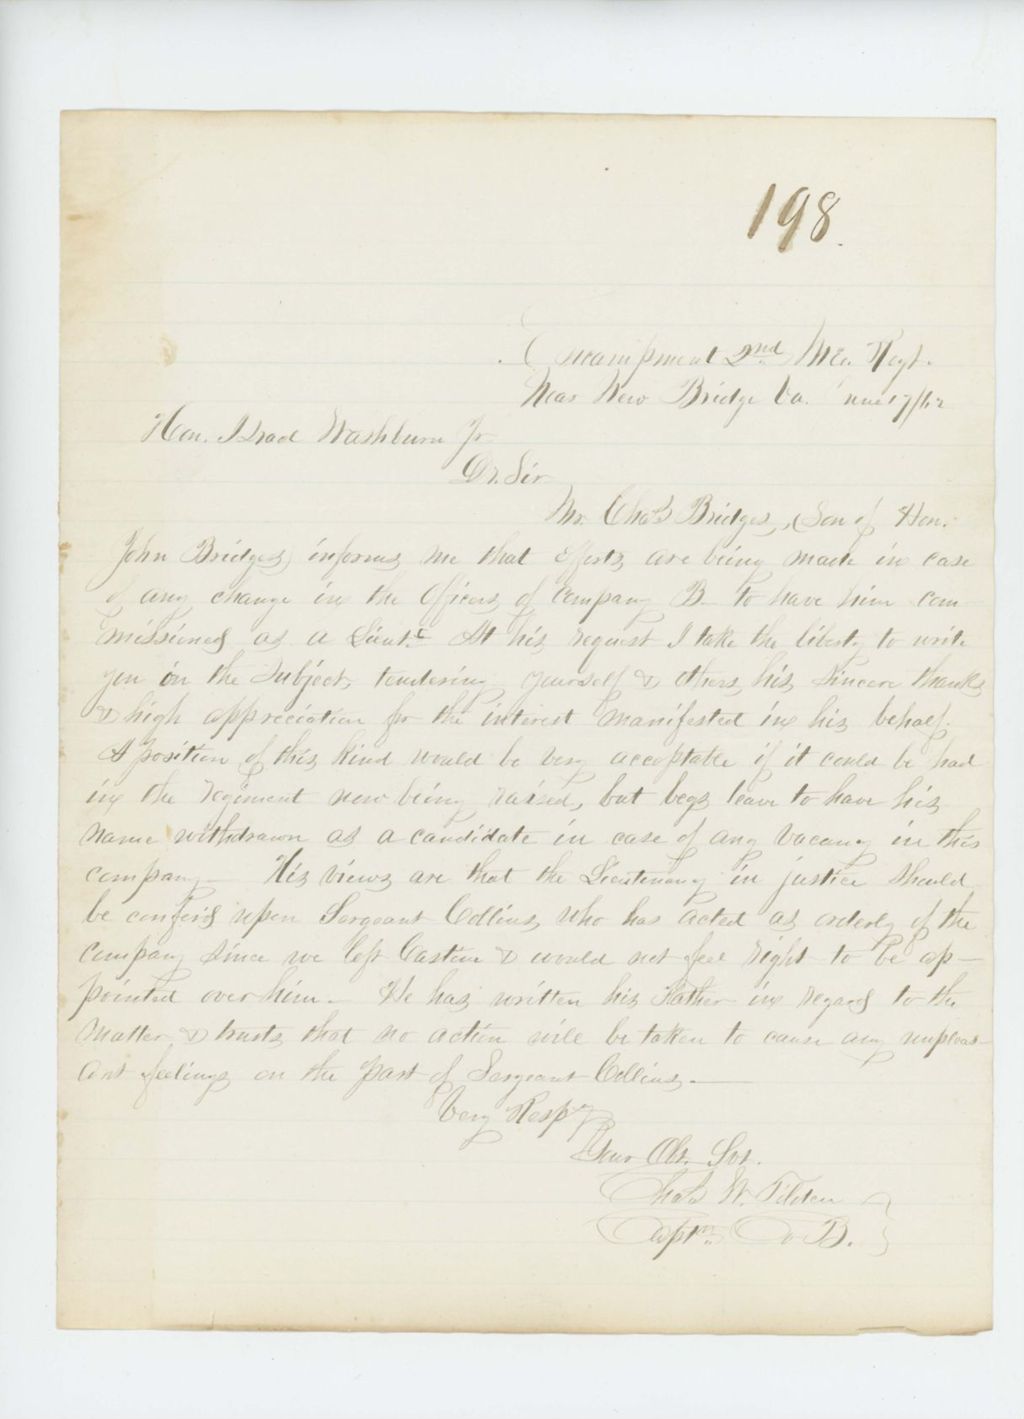 198.
Encampment 2nd Me. Regt.
Near New Bridge Va. June 17/62
Hon. Israel Washburn Jr
Dr. Sir
Mr. Chas Bridges, (Son of Hon.
John Bridges) informs me that efforts are being made in case
of any change in the Officers of Company B. to have him com
missioned as a Lieut. At his request I take the liberty to write
you on the Subject, tendering yourself & others, his Sincere thanks
& high appreciation for the interest manifested in his behalf.
A position of this kind would be very acceptable if it could be had
in the regiment now being raised, but begs leave to have his
name withdrawn as a candidate in case of any vacancy in this
company— His views are that the Lieutenancy in justice should
be confer'd upon Sergeant Collins, who has acted as orderly of the
company since we left Castine & would not feel right to be ap—
pointed over him— He has written his Father in regard to the
matter & trusts that no action will be taken to cause any unpleas
ant feelings on the part of Sergeant Collins.—
Very Respy
Your Obt. Svt.
Chas W. Tilden
Captn. Co B.